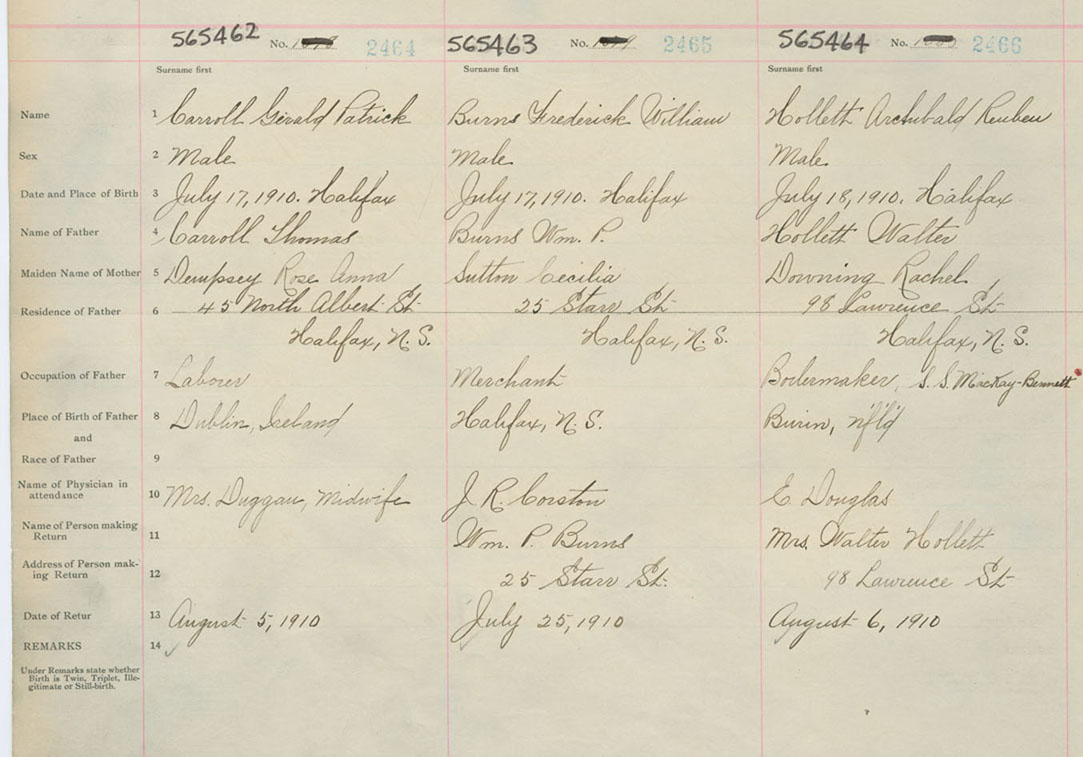 565462 No. 2464 565463 No. 2465 565464 No. 2466
Surname first Surname first Surname first
Name 1 Carroll Gerald Patrick Burns Frederick William Hollett Archibald Reuben
Sex 2 Male Male Male
Date and Place of Birth 3 July 17, 1910. Halifax July 17, 1910. Halifax July 18, 1910. Halifax
Name of Father 4 Carroll Thomas Burns Wm. P. Hollett Walter
Maiden Name of Mother 5 Dempsey Rose Anna Sutton Cecilia Downing Rachel
Residence of Father 6 45 North Albert St 25 Starr St 98 Lawrence St
Halifax, N.S. Halifax, N.S. Halifax, N.S.
Occupation of Father 7 Laborer Merchant Boilermaker, S.S. MacKay-Bennett
Place of Birth of Father 8 Dublin, Ireland Halifax, N.S. Burin, nfld
and
Race of Father 9
Name of Physician in
attendance 10 Mrs. Duggan, Midwife J. R. Corston E. Douglas
Name of Person making
Return 11 Wm. P. Burns Mrs. Walter Hollett
Address of Person mak-
ing Return 12 25 Starr St. 98 Lawrence St
Date of Retur 13 August 5, 1910 July 25, 1910 August 6, 1910
REMARKS 14
Under Remarks state whether
Birth is Twin, Triplet, Ille-
gitimate or Still-birth.